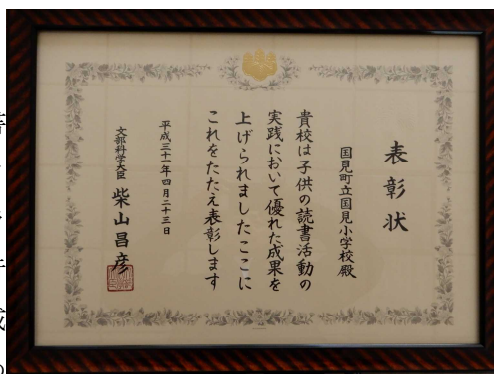 表彰状
国見町立国見小学校殿
貴校は子供の読書活動の
実践において優れた成果を
上げられましたここに
これをたたえ表彰します
平成三十一年四月二十三日
文部科学大臣 柴山昌彦